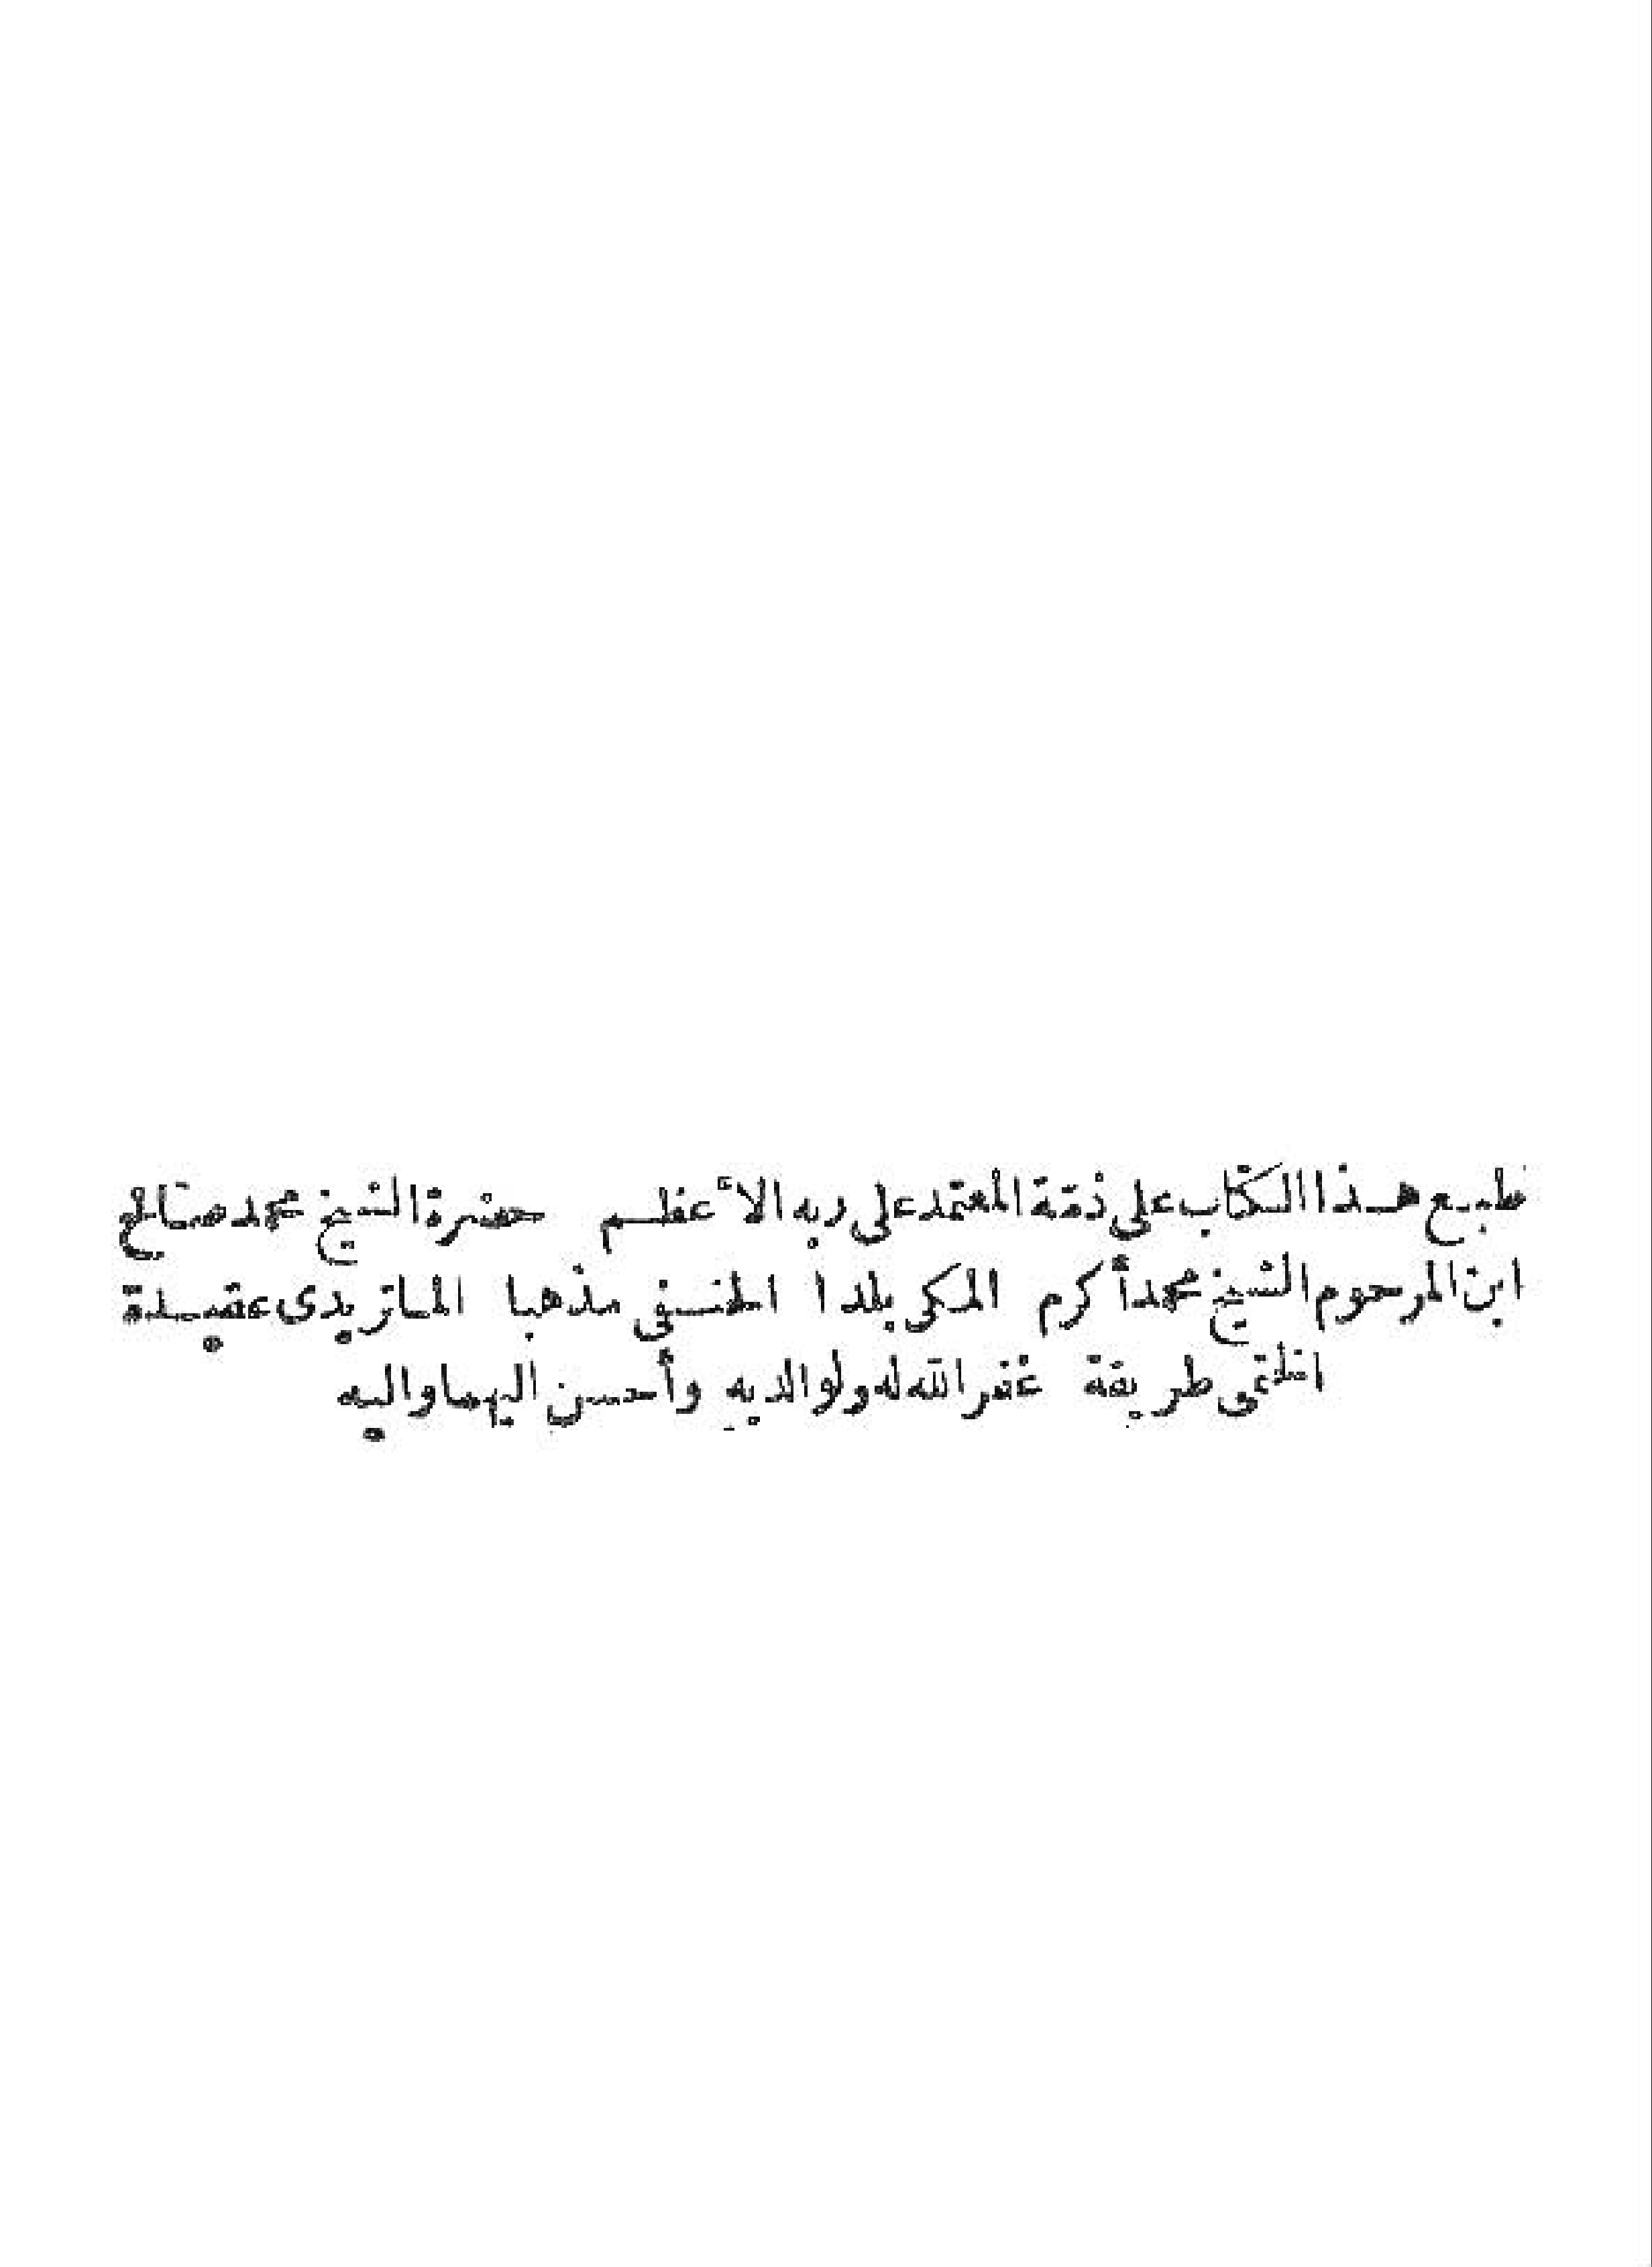 طبع هذا الكتاب على ذمة المعتمد على ربه الأعظم حضرة الشيخ محمد صالح
ابن المرحوم الشيخ محمد أكرم المكى بلدا الحنفى مذهبا الماتريدى عقيدة
الختمى طريقة غفر الله له ولوالديه وأحسن اليهما واليه